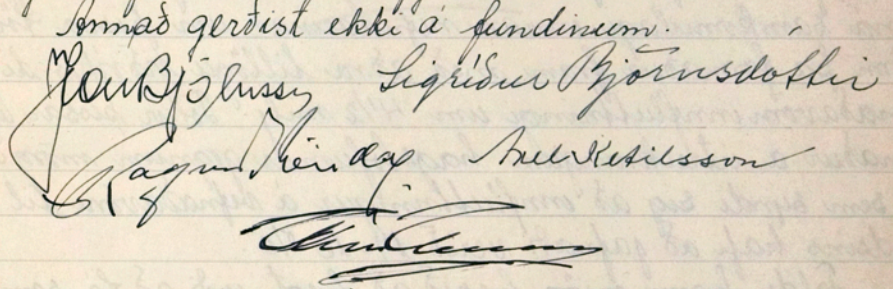 Annað gerðist ekki á fundinum.
Jón Björnsson Sigríður Björnsdóttir
Ragnar Axel Ketilsson